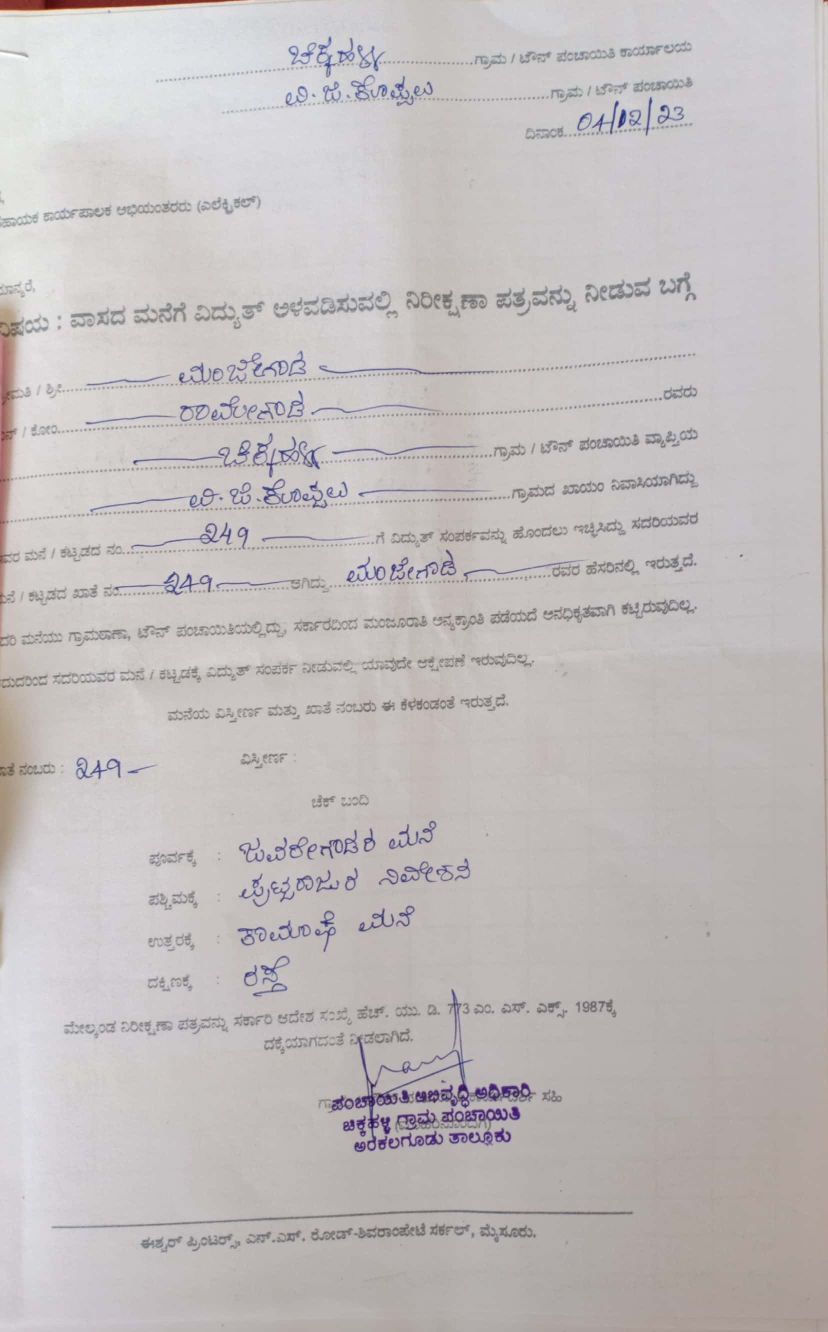 ಚಿಕ್ಕಹಳ್ಳಿ ಗ್ರಾಮ / ಟೌನ್ ಪಂಚಾಯಿತಿ ಕಾರ್ಯಾಲಯ
ವಿ.ಜಿ.ಕೊಪ್ಪಲು ಗ್ರಾಮ / ಟೌನ್ ಪಂಚಾಯಿತಿ
ದಿನಾಂಕ 04/12/23
ಹಾಯಕ ಕಾರ್ಯಪಾಲಕ ಅಭಿಯಂತರರು (ಎಲೆಕ್ಟ್ರಿಕಲ್)
ಮಾನ್ಯರೆ,
ವಿಷಯ : ವಾಸದ ಮನೆಗೆ ವಿದ್ಯುತ್ ಅಳವಡಿಸುವಲ್ಲಿ ನಿರೀಕ್ಷಣಾ ಪತ್ರವನ್ನು ನೀಡುವ ಬಗ್ಗೆ
ೀಮತಿ / ಶ್ರೀ ಮಂಜೇಗೌಡ
ನ್ / ಕೋಂ ರಾಮೇಗೌಡ ರವರು
ಚಿಕ್ಕಹಳ್ಳಿ ಗ್ರಾಮ / ಟೌನ್ ಪಂಚಾಯಿತಿ ವ್ಯಾಪ್ತಿಯ
ವಿ.ಜಿ.ಕೊಪ್ಪಲು ಗ್ರಾಮದ ಖಾಯಂ ನಿವಾಸಿಯಾಗಿದ್ದು
ವರ ಮನೆ / ಕಟ್ಟಡದ ನಂ. 249 ಗೆ ವಿದ್ಯುತ್ ಸಂಪರ್ಕವನ್ನು ಹೊಂದಲು ಇಚ್ಛಿಸಿದ್ದು ಸದರಿಯವರ
ಮನೆ / ಕಟ್ಟಡದ ಖಾತೆ ನಂ 249 ಆಗಿದ್ದು ಮಂಜೇಗೌಡ ರವರ ಹೆಸರಿನಲ್ಲಿ ಇರುತ್ತದೆ.
ದರಿ ಮನೆಯು ಗ್ರಾಮಠಾಣಾ, ಟೌನ್ ಪಂಚಾಯಿತಿಯಲ್ಲಿದ್ದು, ಸರ್ಕಾರದಿಂದ ಮಂಜೂರಾತಿ ಅನ್ಯಕ್ರಾಂತಿ ಪಡೆಯದೆ ಅನಧಿಕೃತವಾಗಿ ಕಟ್ಟಿರುವುದಿಲ್ಲ.
ದುದರಿಂದ ಸದರಿಯವರ ಮನೆ / ಕಟ್ಟಡಕ್ಕೆ ವಿದ್ಯುತ್ ಸಂಪರ್ಕ ನೀಡುವಲ್ಲಿ ಯಾವುದೇ ಆಕ್ಷೇಪಣೆ ಇರುವುದಿಲ್ಲ.
ಮನೆಯ ವಿಸ್ತೀರ್ಣ ಮತ್ತು ಖಾತೆ ನಂಬರು ಈ ಕೆಳಕಂಡಂತೆ ಇರುತ್ತದೆ.
ಾತೆ ನಂಬರು : 249 ವಿಸ್ತೀರ್ಣ :
ಚೆಕ್ ಬಂದಿ
ಪೂರ್ವಕ್ಕೆ : ಜವರೇಗೌಡರ ಮನೆ
ಪಶ್ಚಿಮಕ್ಕೆ : ಪುಟ್ಟರಾಜುರ ನಿವೇಶನ
ಉತ್ತರಕ್ಕೆ : ಮನೆ
ದಕ್ಷಿಣಕ್ಕೆ : ರಸ್ತೆ
ಮೇಲ್ಕಂಡ ನಿರೀಕ್ಷಣಾ ಪತ್ರವನ್ನು ಸರ್ಕಾರಿ ಆದೇಶ ಸಂಖ್ಯೆ ಹೆಚ್. ಯು. ಡಿ. 773 ಎಂ. ಎಸ್. ಎಕ್ಸ್. 1987ಕ್ಕೆ
ದಕ್ಕೆಯಾಗದಂತೆ ನೀಡಲಾಗಿದೆ.
ಸಹಿ
ಪಂಚಾಯಿತಿ ಅಭಿವೃದ್ಧಿ ಅಧಿಕಾರಿ
ಚಿಕ್ಕಹಳ್ಳಿ ಗ್ರಾಮ ಪಂಚಾಯಿತಿ
ಅರಕಲಗೂಡು ತಾಲ್ಲೂಕು
ಈಶ್ವರ್ ಪ್ರಿಂಟರ್ಸ್, ಎನ್.ಎಸ್. ರೋಡ್-ಶಿವರಾಂಪೇಟೆ ಸರ್ಕಲ್, ಮೈಸೂರು.